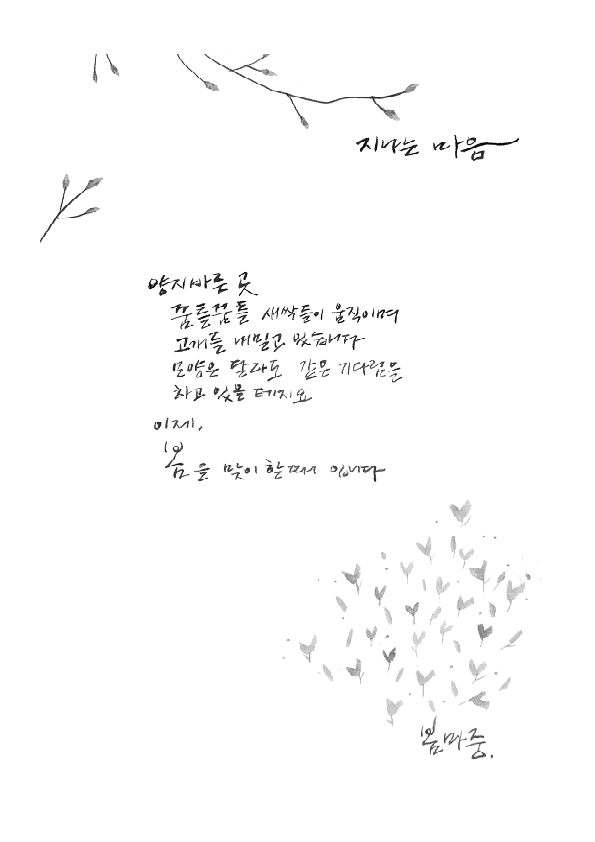 지나는 마음
양지바른 곳
꿈틀꿈틀 새싹들이 움직이며
고개를 내밀고 있습니다
모양은 달라도 같은 기다림을
하고 있을 테지요
이제,
봄을 맞이 할때 입니다
봄마중.